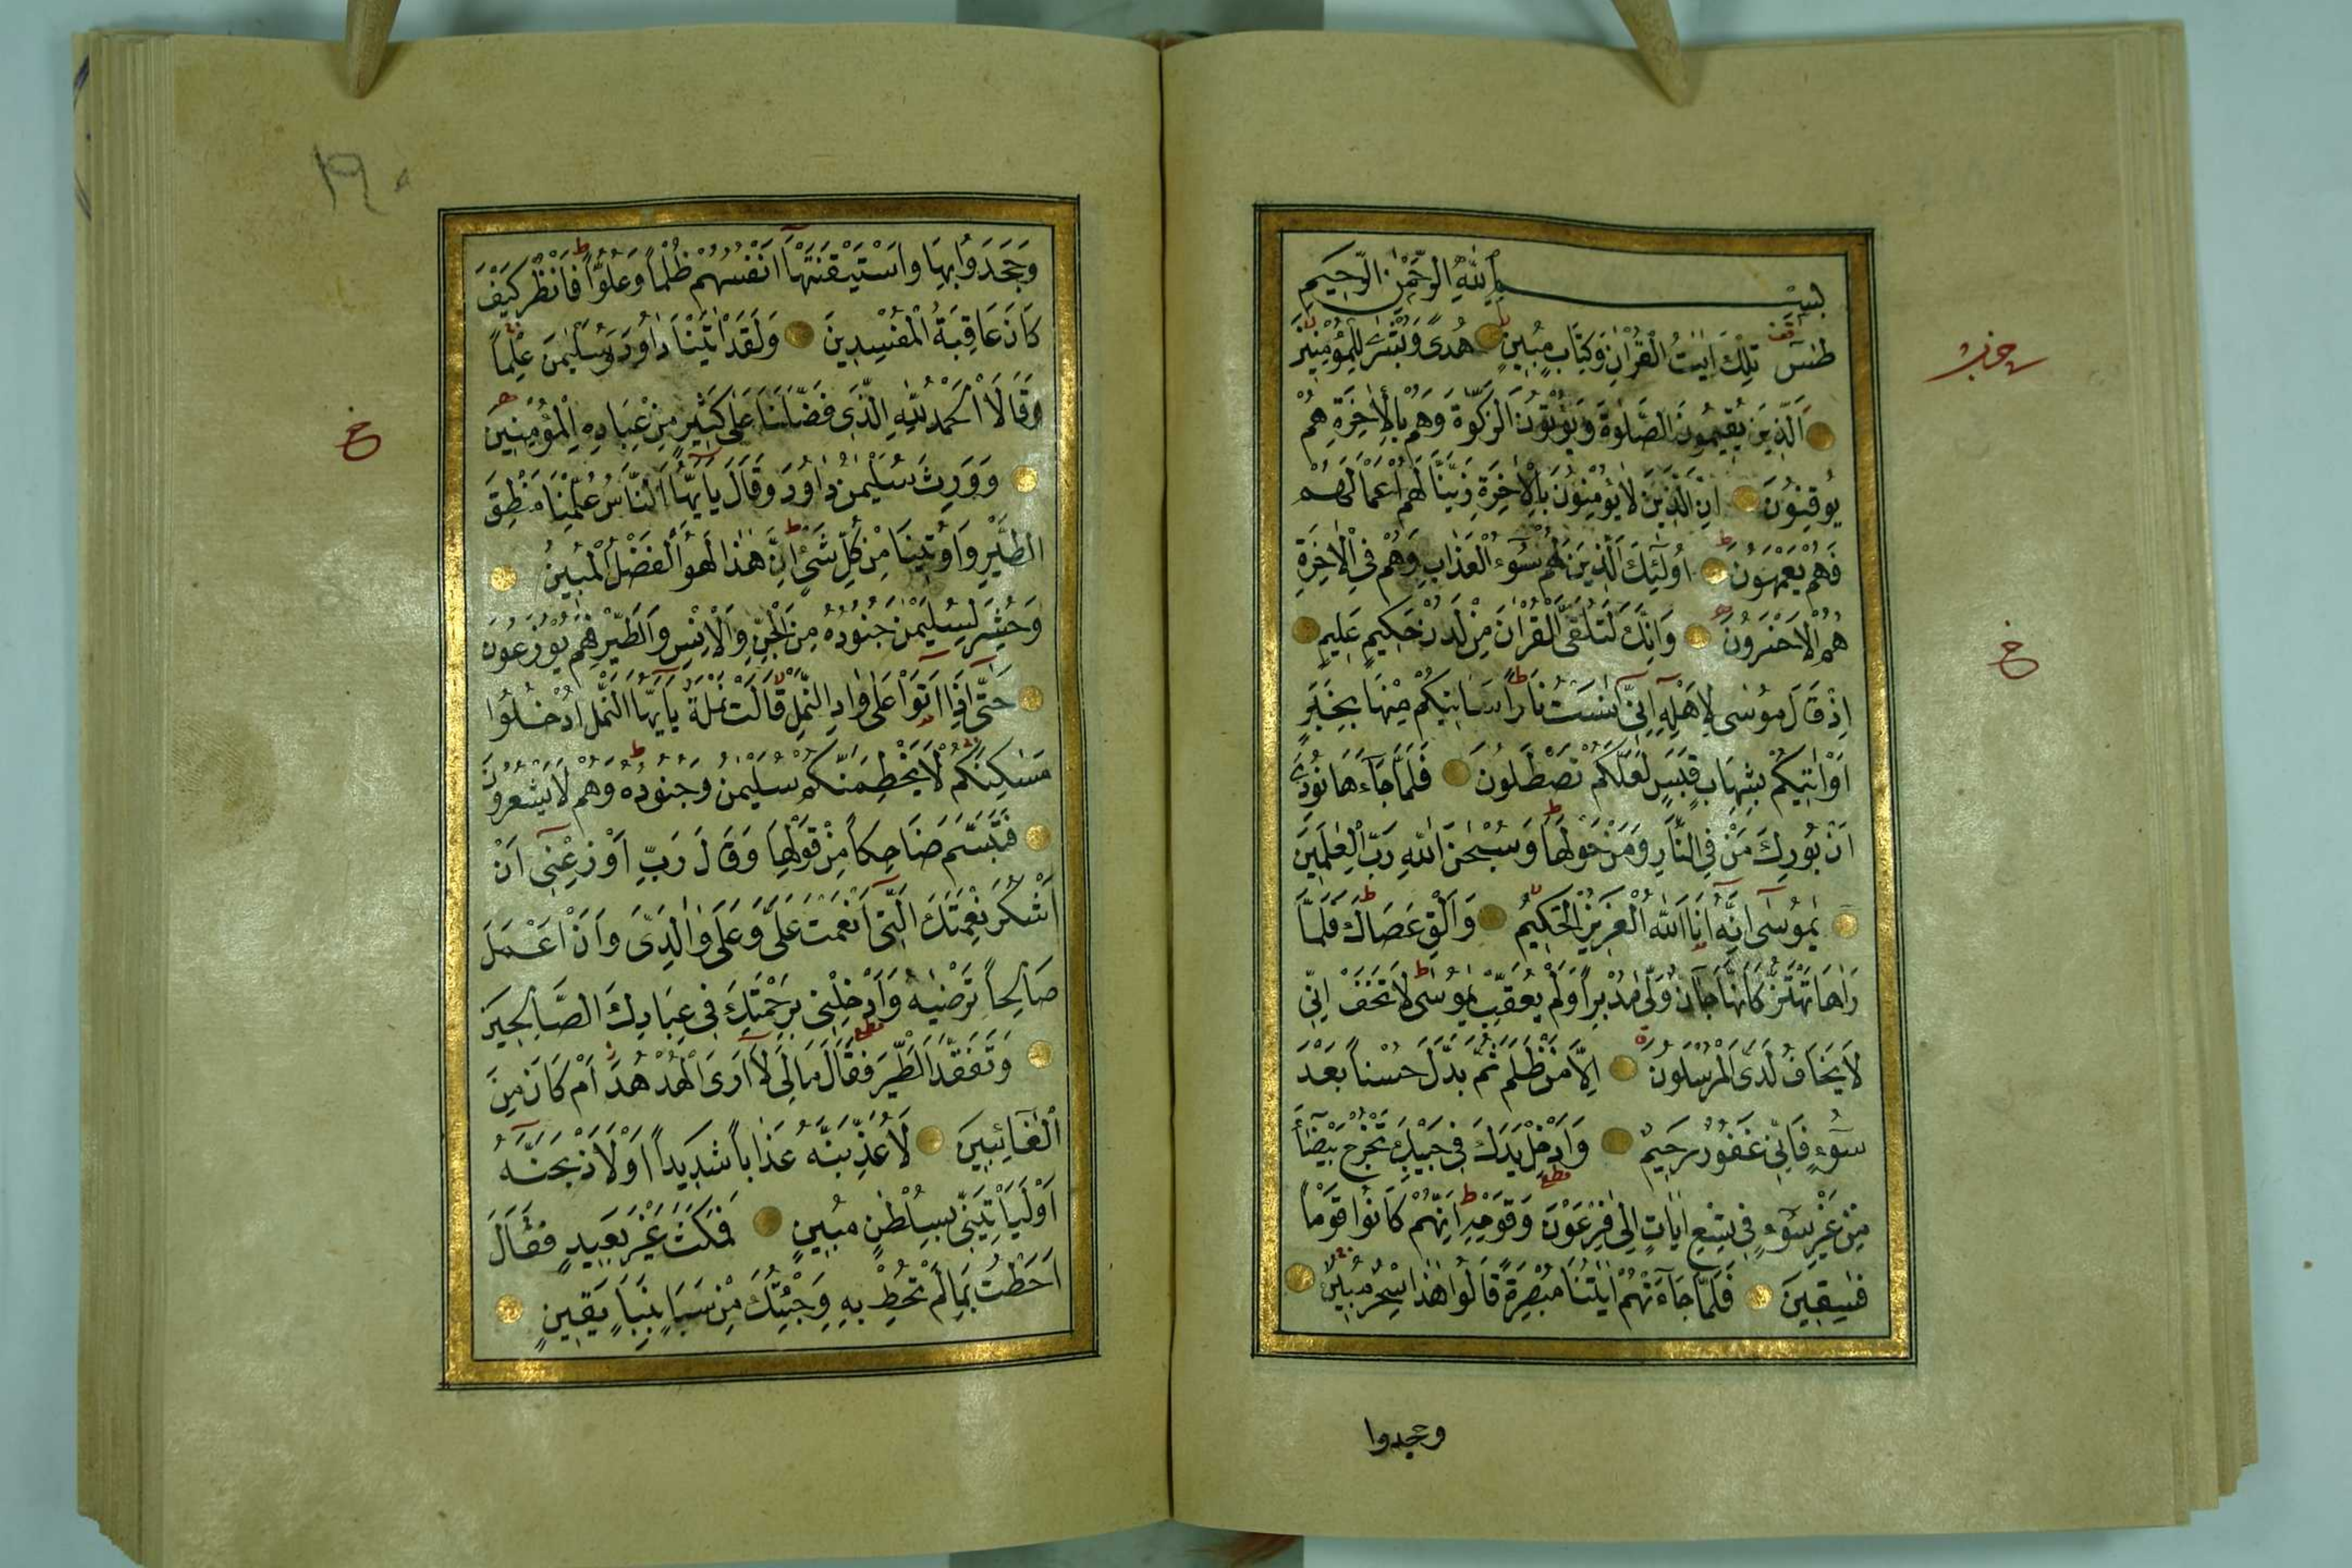 بِسْمِ اللّٰهِ الرَّحْمٰنِ الرَّحِيمِ
طٰسٓ تِلْكَ اٰيَاتُ الْقُرْاٰنِ وَكِتَابٍ مُبِينٍ هُدًى وَبُشْرٰى لِلْمُؤْمِنِينَ
اَلَّذِينَ يُقِيمُونَ الصَّلٰوةَ وَيُؤْتُونَ الزَّكٰوةَ وَهُمْ بِالْاٰخِرَةِ هُمْ
يُوقِنُونَ اِنَّ الَّذِينَ لَا يُؤْمِنُونَ بِالْاٰخِرَةِ زَيَّنَّا لَهُمْ اَعْمَالَهُمْ
فَهُمْ يَعْمَهُونَ اُولٰٓئِكَ الَّذِينَ لَهُمْ سُٓوءُ الْعَذَابِ وَهُمْ فِي الْاٰخِرَةِ
هُمُ الْاَخْسَرُونَ وَاِنَّكَ لَتُلَقَّى الْقُرْاٰنَ مِنْ لَدُنْ حَكِيمٍ عَلِيمٍ
اِذْ قَالَ مُوسٰى لِاَهْلِهٖٓ اِنِّٓي اٰنَسْتُ نَارًا سَاٰتِيكُمْ مِنْهَا بِخَبَرٍ
اَوْ اٰتِيكُمْ بِشِهَابٍ قَبَسٍ لَعَلَّكُمْ تَصْطَلُونَ فَلَمَّا جَٓاءَهَا نُودِيَ
اَنْ بُورِكَ مَنْ فِي النَّارِ وَمَنْ حَوْلَهَا وَسُبْحٰنَ اللّٰهِ رَبِّ الْعٰلَمِينَ
يٰمُوسٰٓى اِنَّهُٓ اَنَا اللّٰهُ الْعَزِيزُ الْحَكِيمُ وَاَلْقِ عَصَاكَ فَلَمَّا
رَاٰهَا تَهْتَزُّ كَاَنَّهَا جَٓانٌّ وَلّٰى مُدْبِرًا وَلَمْ يُعَقِّبْ يٰمُوسٰى لَا تَخَفْ اِنِّي
لَا يَخَافُ لَدَيَّ الْمُرْسَلُونَ اِلَّا مَنْ ظَلَمَ ثُمَّ بَدَّلَ حُسْنًا بَعْدَ
سُٓوءٍ فَاِنِّي غَفُورٌ رَحِيمٌ وَاَدْخِلْ يَدَكَ فِي جَيْبِكَ تَخْرُجْ بَيْضَٓاءَ
مِنْ غَيْرِ سُٓوءٍ فِي تِسْعِ اٰيَاتٍ اِلٰى فِرْعَوْنَ وَقَوْمِهٖ اِنَّهُمْ كَانُوا قَوْمًا
فٰسِقِينَ فَلَمَّا جَٓاءَتْهُمْ اٰيٰتُنَا مُبْصِرَةً قَالُوا هٰذَا سِحْرٌ مُبِينٌ
وجحدوا
وَجَحَدُوا بِهَا وَاسْتَيْقَنَتْهَٓا اَنْفُسُهُمْ ظُلْمًا وَعُلُوًّا فَانْظُرْ كَيْفَ
كَانَ عَاقِبَةُ الْمُفْسِدِينَ وَلَقَدْ اٰتَيْنَا دَاوُدَ وَسُلَيْمٰنَ عِلْمًا
وَقَالَا الْحَمْدُ لِلّٰهِ الَّذِي فَضَّلَنَا عَلٰى كَثِيرٍ مِنْ عِبَادِهِ الْمُؤْمِنِينَ
وَوَرِثَ سُلَيْمٰنُ دَاوُدَ وَقَالَ يَٓا اَيُّهَا النَّاسُ عُلِّمْنَا مَنْطِقَ
الطَّيْرِ وَاُوتِينَا مِنْ كُلِّ شَيْءٍ اِنَّ هٰذَا لَهُوَ الْفَضْلُ الْمُبِينُ
وَحُشِرَ لِسُلَيْمٰنَ جُنُودُهُ مِنَ الْجِنِّ وَالْاِنْسِ وَالطَّيْرِ فَهُمْ يُوزَعُونَ
حَتّٰٓى اِذَٓا اَتَوْا عَلٰى وَادِ النَّمْلِ قَالَتْ نَمْلَةٌ يَٓا اَيُّهَا النَّمْلُ ادْخُلُوا
مَسٰكِنَكُمْ لَا يَحْطِمَنَّكُمْ سُلَيْمٰنُ وَجُنُودُهُ وَهُمْ لَا يَشْعُرُونَ
فَتَبَسَّمَ ضَاحِكًا مِنْ قَوْلِهَا وَقَالَ رَبِّ اَوْزِعْنِٓي اَنْ
اَشْكُرَ نِعْمَتَكَ الَّتِٓي اَنْعَمْتَ عَلَيَّ وَعَلٰى وَالِدَيَّ وَاَنْ اَعْمَلَ
صَالِحًا تَرْضٰيهُ وَاَدْخِلْنِي بِرَحْمَتِكَ فِي عِبَادِكَ الصَّالِحِينَ
وَتَفَقَّدَ الطَّيْرَ فَقَالَ مَا لِيَ لَٓا اَرَى الْهُدْهُدَ اَمْ كَانَ مِنَ
الْغَٓائِبِينَ لَاُعَذِّبَنَّهُ عَذَابًا شَدِيدًا اَوْ لَاَذْبَحَنَّهُٓ
اَوْ لَيَأْتِيَنِّي بِسُلْطٰنٍ مُبِينٍ فَمَكَثَ غَيْرَ بَعِيدٍ فَقَالَ
اَحَطْتُ بِمَا لَمْ تُحِطْ بِهٖ وَجِئْتُكَ مِنْ سَبَاٍ بِنَبَاٍ يَقِينٍ